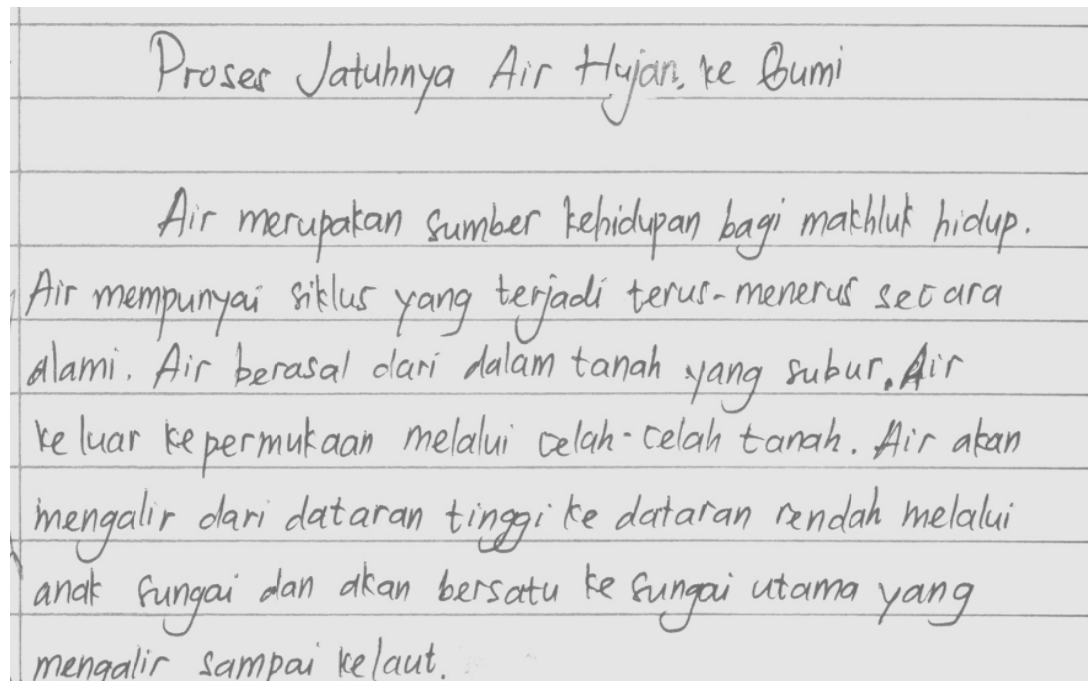 Proses Jatuhnya Air Hujan, ke Bumi
Air merupakan sumber kehidupan bagi makhluk hidup.
Air mempunyai siklus yang terjadi terus-menerus secara
alami. Air berasal dari dalam tanah yang subur. Air
keluar kepermukaan melalui celah-celah tanah. Air akan
mengalir dari dataran tinggi ke dataran rendah melalui
anak sungai dan akan bersatu ke sungai utama yang
mengalir sampai kelaut.